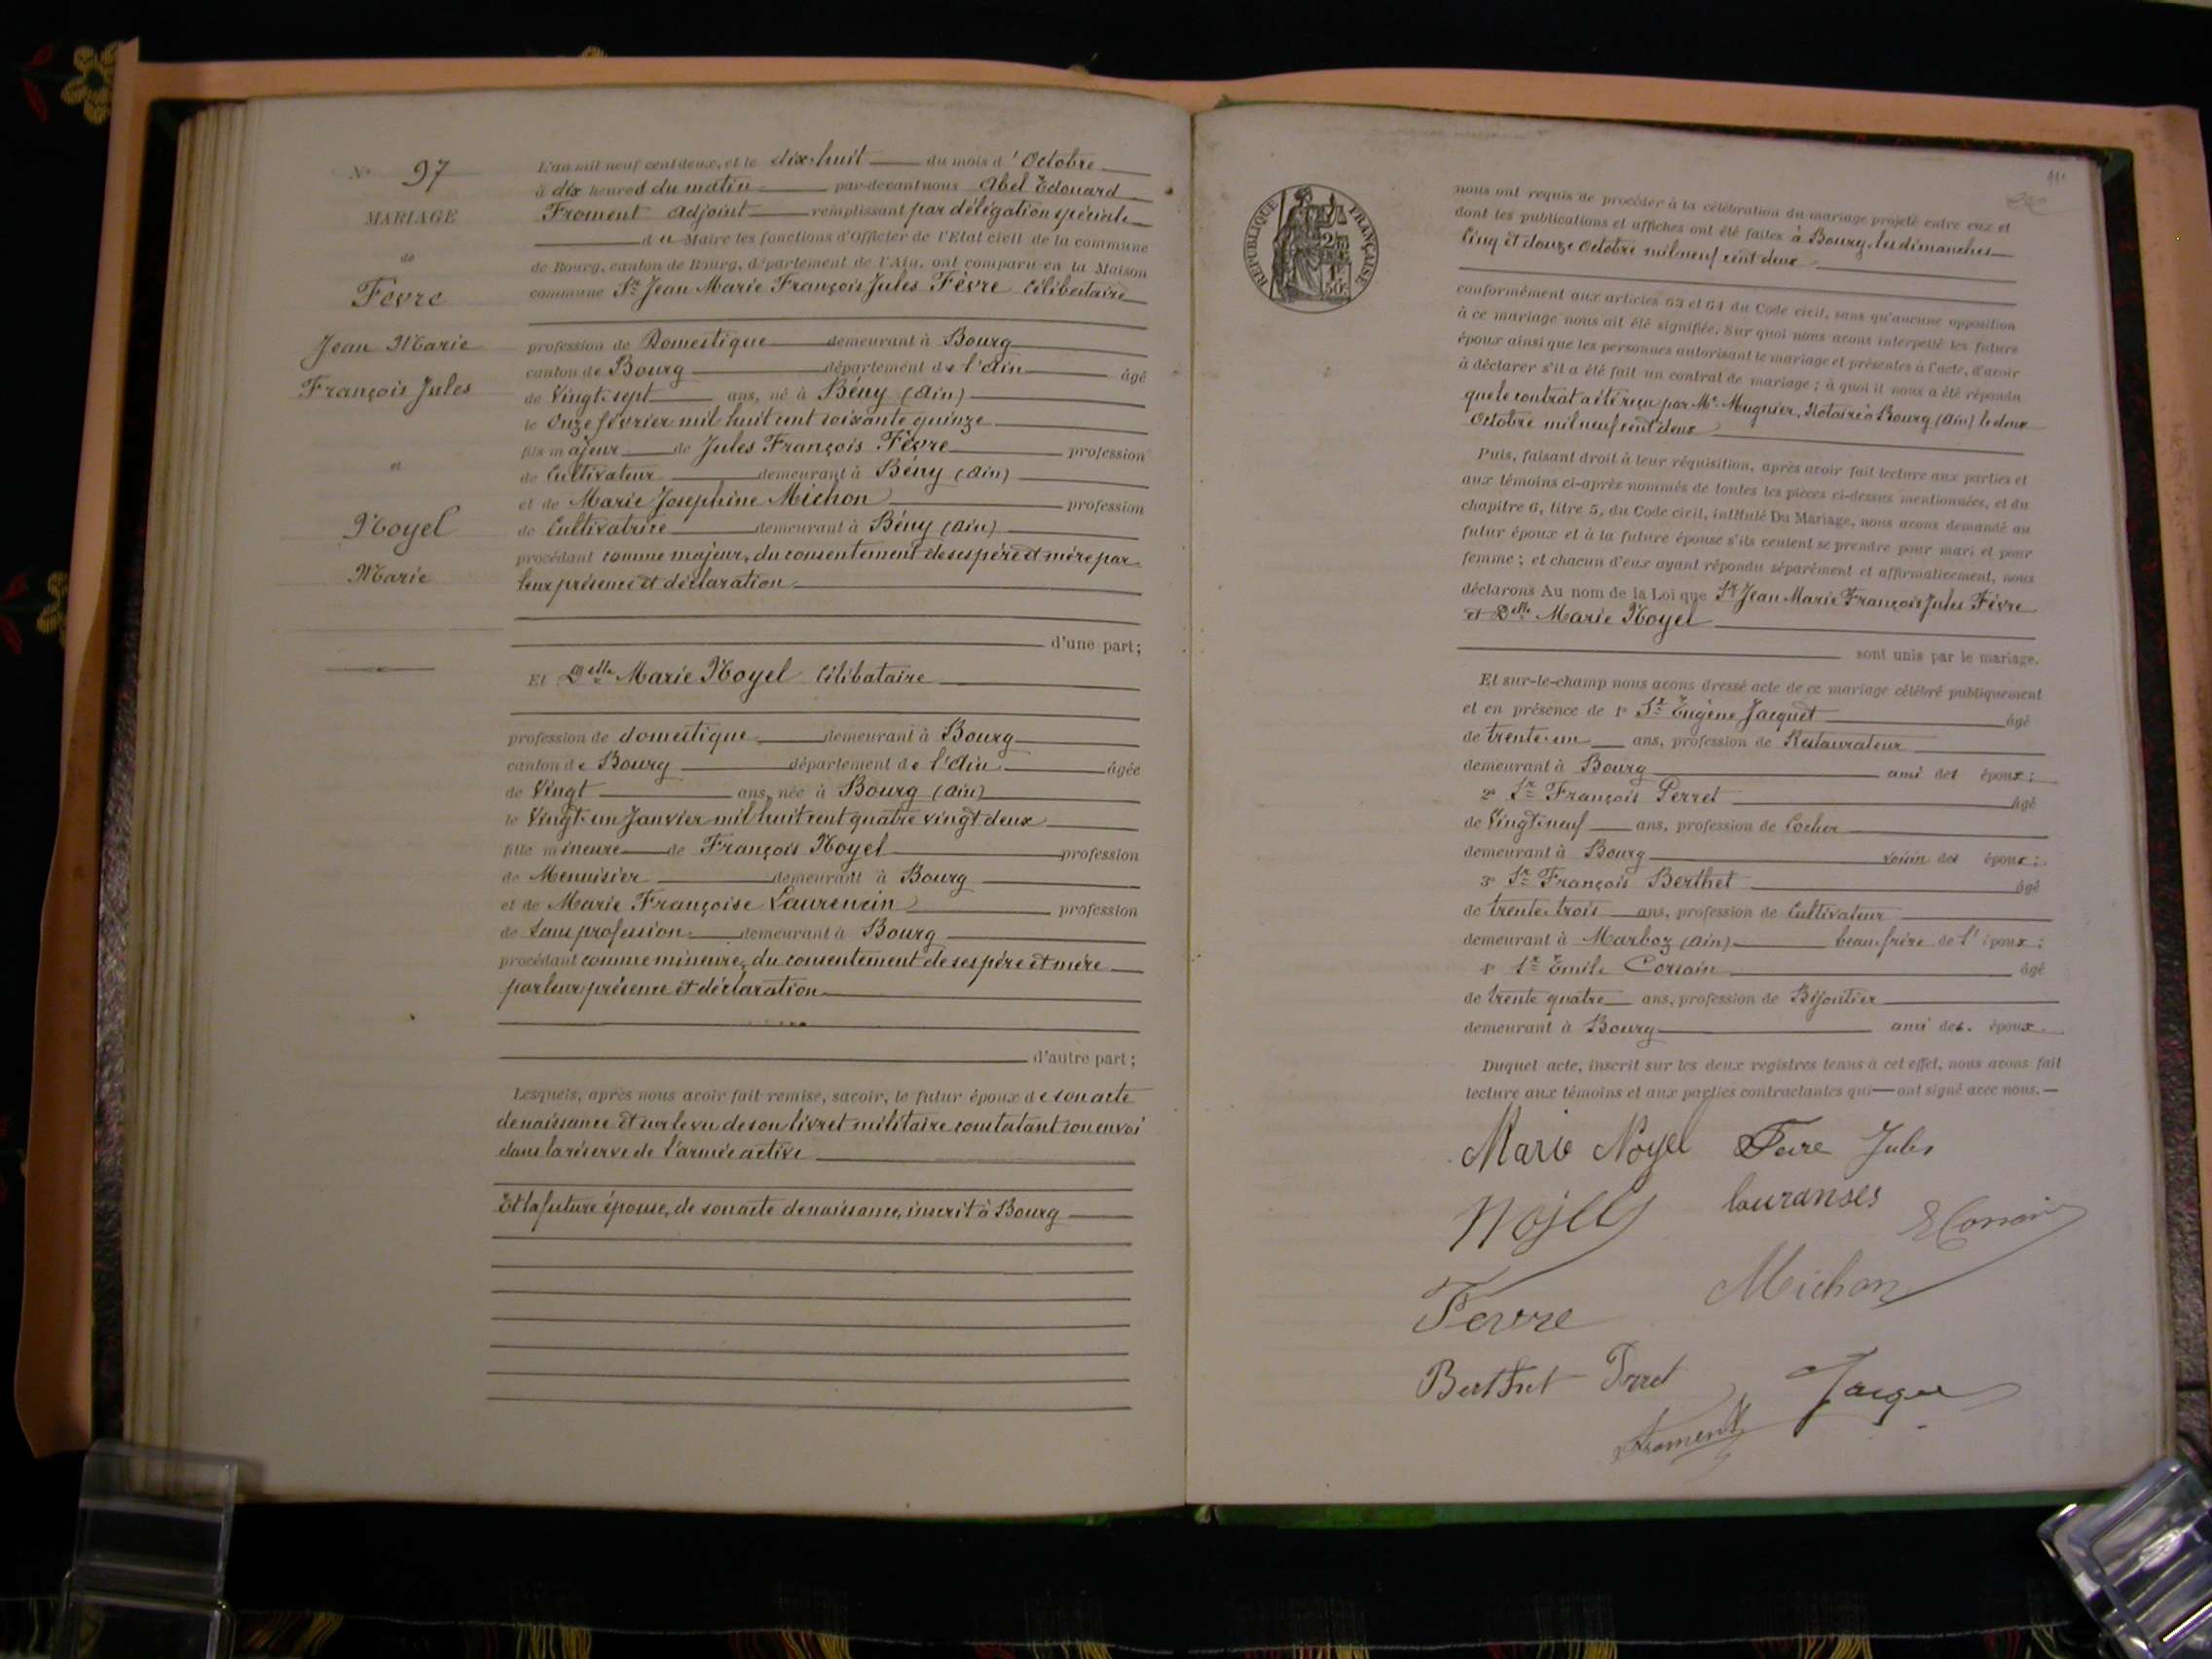 N° 97
MARIAGE
de
Fevre
Jean Marie
François Jules
et
Noyel
Marie
L'an mil neuf cent deux, et le dix-huit du mois d'Octobre
à dix heures du matin par-devant nous Abel Edouard
Froment Adjoint remplissant par délégation spéciale
du Maire les fonctions d'Officier de l'Etat civil de la commune
de Bourg, canton de Bourg, département de l'Ain, ont comparu en la Maison
commune Sr Jean Marie François Jules Fèvre Célibataire
profession de Domestique demeurant à Bourg
canton de Bourg département de l'Ain âgé
de Vingt-sept ans, né à Bény (Ain)
le Onze février mil huit cent soixante quinze
fils majeur de Jules François Fèvre profession
de Cultivateur demeurant à Bény (Ain)
et de Marie Josephine Michon profession
de Cultivatrice demeurant à Bény (Ain)
procédant comme majeur, du consentement de ses père et mère par
leur présence et déclaration
d'une part;
Et Delle Marie Noyel Célibataire
profession de domestique demeurant à Bourg
canton de Bourg département de l'Ain âgée
de Vingt ans, née à Bourg (Ain)
le Vingt-un Janvier mil huit cent quatre vingt deux
fille mineure de François Noyel profession
de Menuisier demeurant à Bourg
et de Marie Françoise Laurencin profession
de Sans profession demeurant à Bourg
procédant comme mineure, du consentement de ses père et mère
par leur présence et déclaration
d'autre part;
Lesquels, après nous avoir fait remise, savoir, le futur époux de son acte
de naissance et sur le vu de son livret militaire constatant son envoi
dans la réserve de l'armée active
Et la future épouse, de son acte de naissance, inscrit à Bourg
RÉPUBLIQUE FRANÇAISE
nous ont requis de procéder à la célébration du mariage projeté entre eux et
dont les publications et affiches ont été faites à Bourg, les dimanches
Cinq et douze Octobre mil neuf cent deux
conformément aux articles 63 et 64 du Code civil, sans qu'aucune opposition
à ce mariage nous ait été signifiée. Sur quoi nous avons interpellé les futurs
époux ainsi que les personnes autorisant le mariage et présentes à l'acte, d'avoir
à déclarer s'il a été fait un contrat de mariage; à quoi il nous a été répondu
que le contrat a été reçu par Me Mugnier, Notaire à Bourg (Ain) le deux
Octobre mil neuf cent deux
Puis, faisant droit à leur réquisition, après avoir fait lecture aux parties et
aux témoins ci-après nommés de toutes les pièces ci-dessus mentionnées, et du
chapitre 6, titre 5, du Code civil, intitulé Du Mariage, nous avons demandé au
futur époux et à la future épouse s'ils veulent se prendre pour mari et pour
femme; et chacun d'eux ayant répondu séparément et affirmativement, nous
déclarons Au nom de la Loi que Sr Jean Marie François Jules Fèvre
et Delle Marie Noyel
sont unis par le mariage.
Et sur-le-champ nous avons dressé acte de ce mariage célébré publiquement
et en présence de 1° Sr Eugène Jacquet âgé
de trente-un ans, profession de Restaurateur
demeurant à Bourg ami des époux;
2° Sr François Perret âgé
de Vingt-neuf ans, profession de Cocher
demeurant à Bourg voisin des époux;
3° Sr François Berthet âgé
de trente-trois ans, profession de Cultivateur
demeurant à Marboz (Ain) beau-frère de l'époux;
4° Sr Emile Corsain âgé
de trente quatre ans, profession de Bijoutier
demeurant à Bourg ami des époux
Duquel acte, inscrit sur les deux registres tenus à cet effet, nous avons fait
lecture aux témoins et aux parties contractantes qui ont signé avec nous.
Marie Noyel Fevre Jules
louranses
Fevre Michon
Berthet Perret
Froment